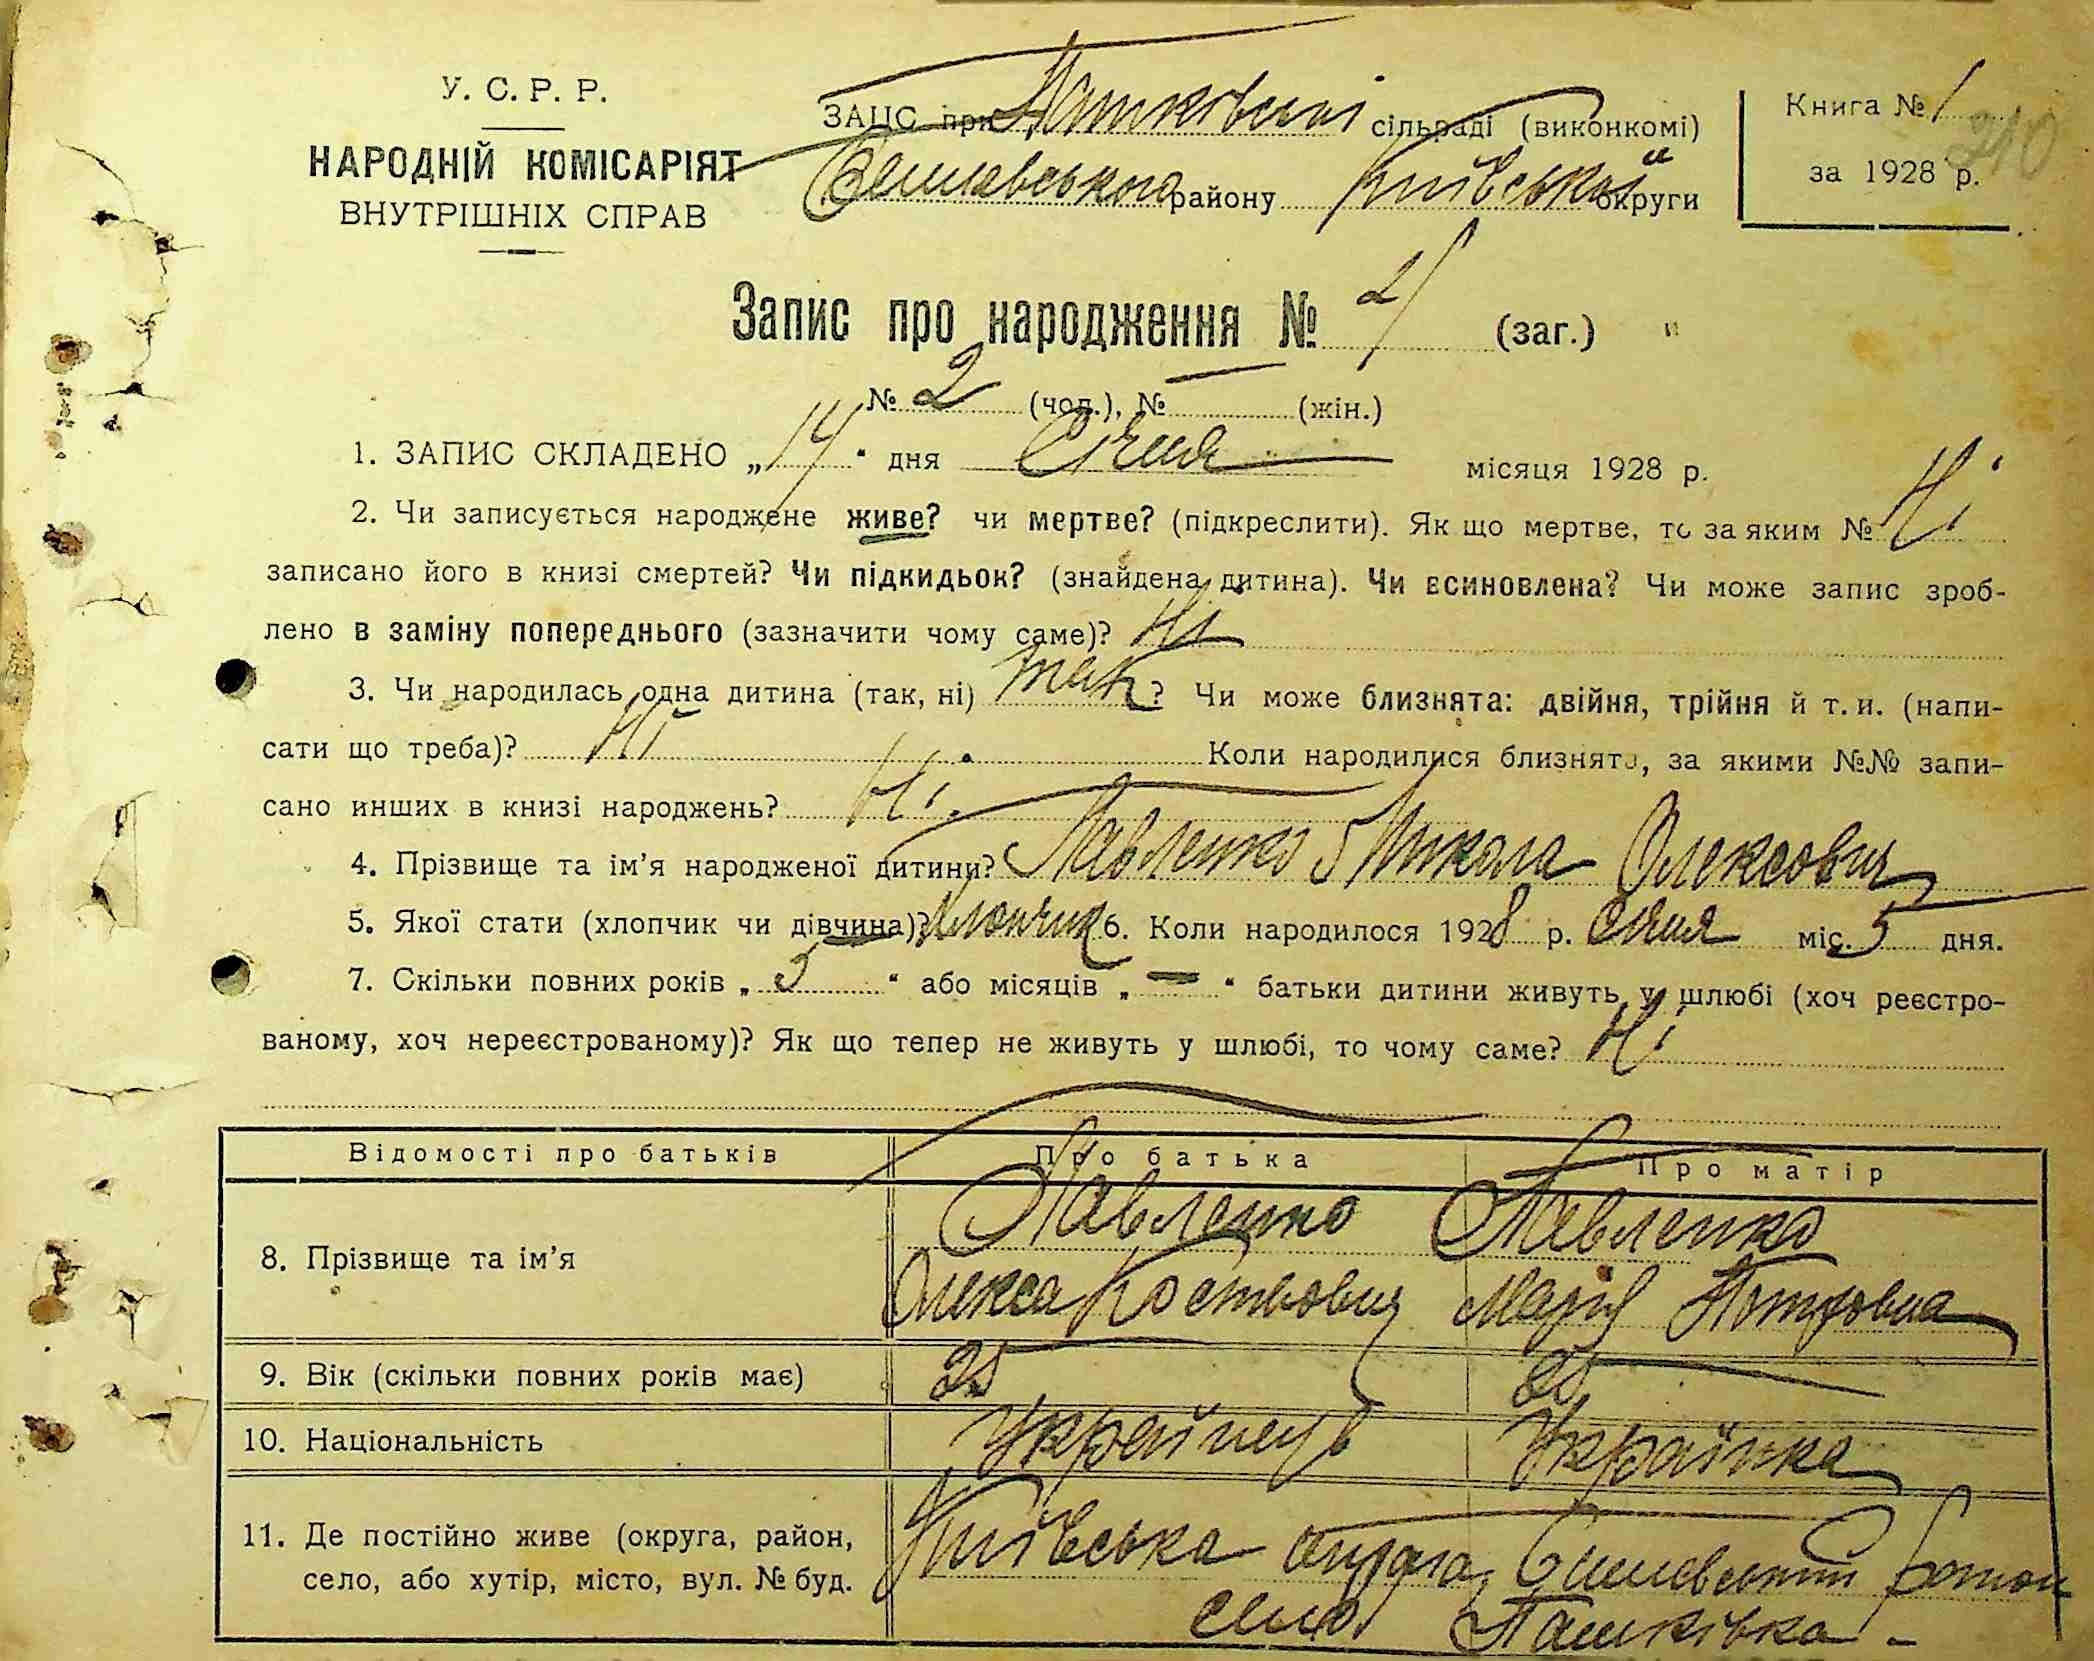 У. С. Р. Р.
НАРОДНІЙ КОМІСАРІЯТ
ВНУТРІШНІХ СПРАВ
ЗАЦС при Пашківській сільраді (виконкомі)
району Київської округи
Книга № 1
210
за 1928 р.
Запис про народження № 2 (заг.)
№ 2 (чол.), № — (жін.)
1. ЗАПИС СКЛАДЕНО „14“ дня Січня місяця 1928 р.
2. Чи записується народжене живе? чи мертве? (підкреслити). Як що мертве, то за яким № Ні
записано його в книзі смертей? Чи підкидьок? (знайдена дитина). Чи всиновлена? Чи може запис зроб-
лено в заміну попереднього (зазначити чому саме)? Ні
3. Чи народилась одна дитина (так, ні) так? Чи може близнята: двійня, трійня й т. и. (напи-
сати що треба)? Ні Коли народилися близнята, за якими №№ запи-
сано инших в книзі народжень? Ні.
4. Прізвище та ім’я народженої дитини? Павленко Микола Олексович
5. Якої стати (хлопчик чи дівчина)? Хлопчик 6. Коли народилося 1928 р. Січня міс. 5 дня.
7. Скільки повних років „ 5 “ або місяців „ — “ батьки дитини живуть у шлюбі (хоч реєстро-
ваному, хоч нереєстрованому)? Як що тепер не живуть у шлюбі, то чому саме? Ні
Відомості про батьків Про батька Про матір
8. Прізвище та ім’я Павленко Олекса Костьович Павленко Марія Петровна
9. Вік (скільки повних років має) 25 25
10. Національність Українець Українка
11. Де постійно живе (округа, район, Київська округа,
село, або хутір, місто, вул. № буд. село Пашківка -